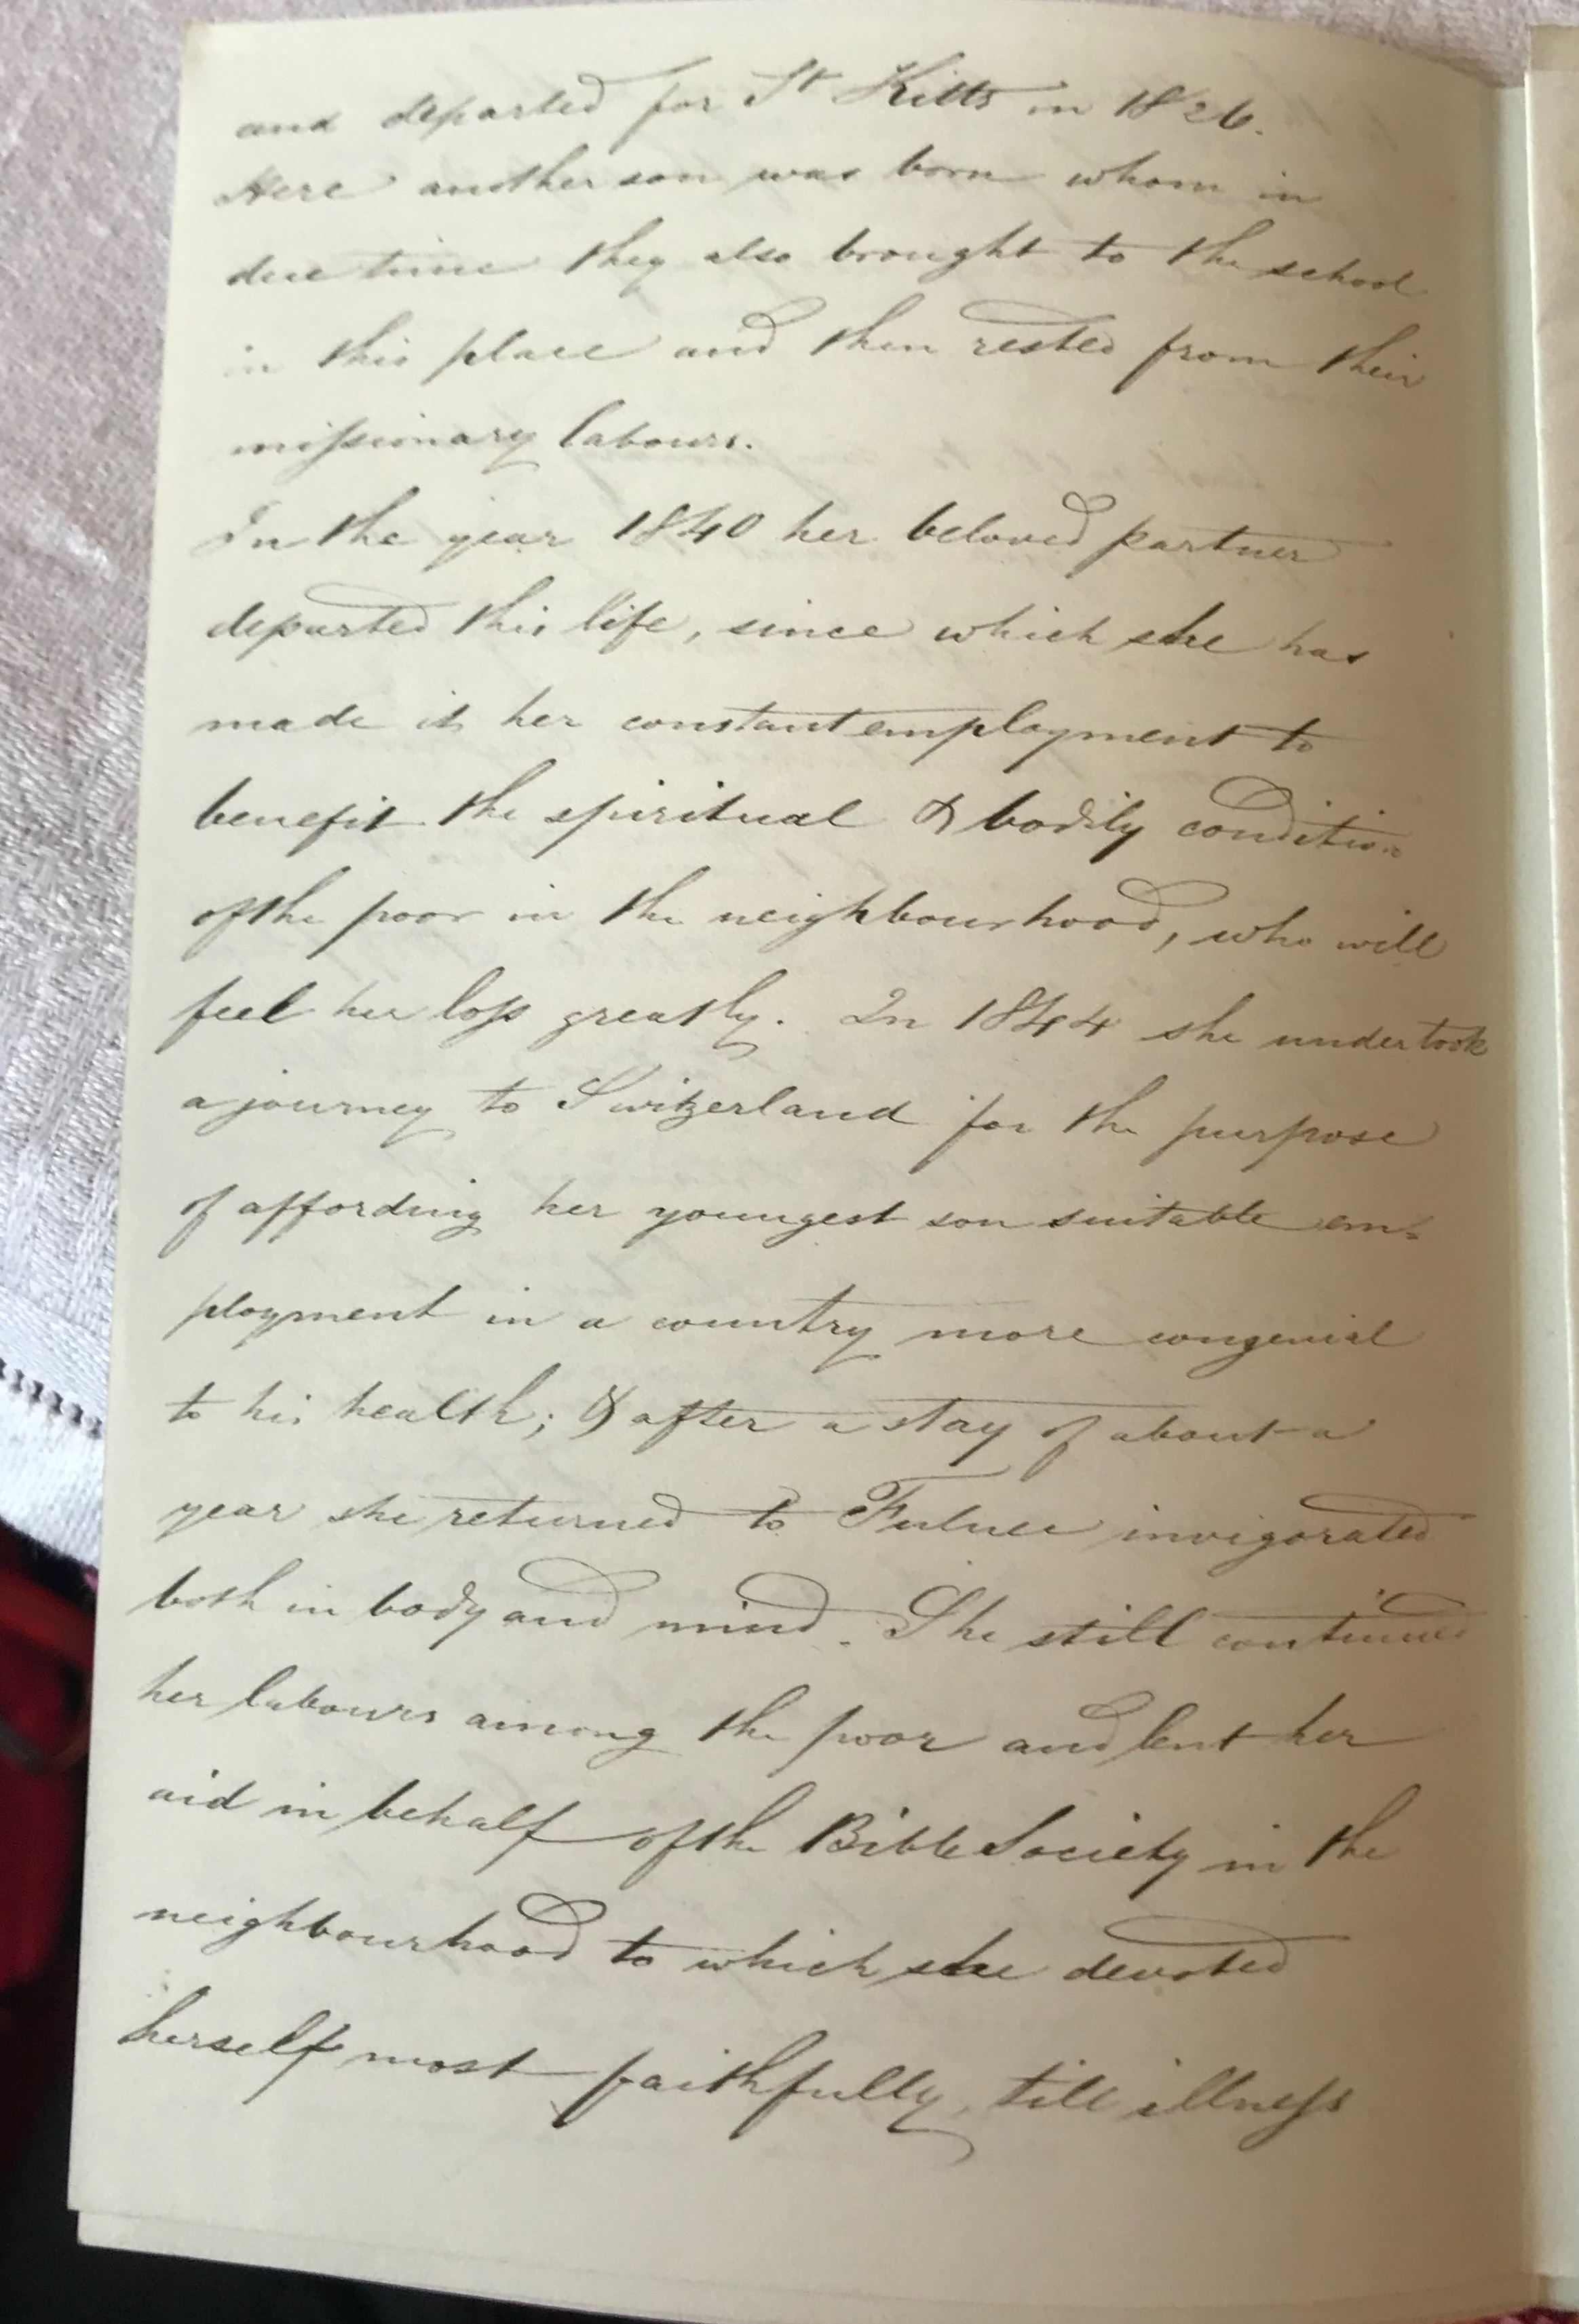 and departed for St Kitts in 1826.
Here another son was born whom in
due time they also brought to the school
in this place and then rested from their
missionary labours.
In the year 1840 her beloved partner
departed this life, since which she has
made it her constant employment to
benefit the spiritual & bodily condition
of the poor in the neighbourhood, who will
feel her loss greatly. In 1844 she undertook
a journey to Switzerland for the purpose
of affording her youngest son suitable em-
ployment in a country more congenial
to his health; & after a stay of about a
year she returned to Fulnec invigorated
both in body and mind. She still continued
her labours among the poor and lent her
aid in behalf of the Bible Society in the
neighbourhood to which she devoted
herself most faithfully, till illness